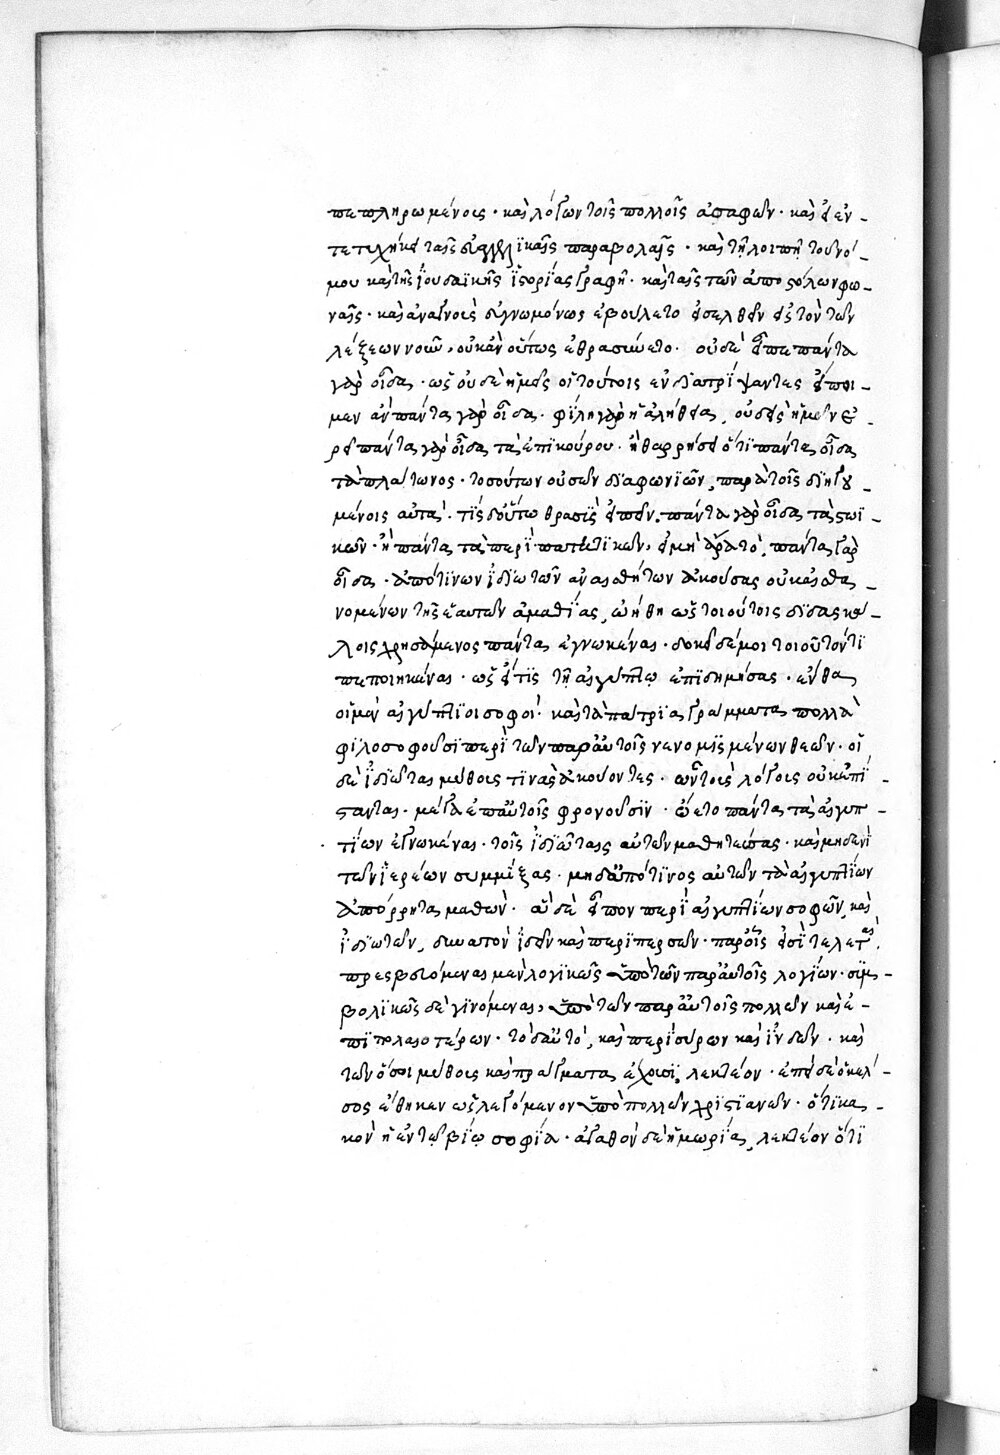 πεπληρωμένοις· καὶ λόγων τοῖς πολλοῖς ἀσαφῶν· καὶ εἰ ἐν_
τετυχήκει ταῖς εὐαγγελϊκαῖς παραβολαῖς· καὶ τῇ λοιπῇ τοῦ νό_
μου καὶ τῆς ἰουδαϊκῆς ἱστορίας γραφῇ· καὶ ταῖς τῶν ἀποστόλων φω_
ναῖς· καὶ ἀναγνοὺς εὐγνωμόνως ἐβούλετο εἰσελθεῖν εἰς τὸν τῶν
λέξεων νοῦν, οὐκ ἂν οὕτως ἐθρασύνετο· οὐδὲ εἶπε πάντα
γὰρ οἶδα· ὡς οὐδὲ ἡμεῖς οἱ τούτοις ἐνδιατρίψαντες εἴποι_
μεν ἂν πάντα γὰρ οἶδα· φίλη γὰρ ἡ ἀλήθεια, οὐδεὶς ἡμῶν ἐ_
ρεῖ πάντα γὰρ οἶδα τὰ ἐπικούρου· ἢ θαρρήσει ὅτι πάντα οἶδε
τὰ πλάτωνος· τοσούτων οὐσῶν διαφωνιῶν, παρὰ τοῖς διηγου_
μένοις αὐτά· τίς δ' οὕτω θρασὺς εἰπεῖν, πάντα γὰρ οἶδα τὰ στωϊ_
κῶν· ἢ πάντα τὰ περιπατητικῶν, εἰ μὴ ἄρα τό, πάντα γὰρ
οἶδα· ἀπό τινων ἰδϊωτῶν ἀναισθήτων ἀκούσας οὐκ αἰσθα_
νομένων τῆς ἑαυτῶν ἀμαθίας, ᾠήθη ὡς τοιούτοις διδασκά_
λοις χρησάμενος πάντα ἐγνωκέναι· δοκεῖ δέ μοι τοιοῦτόν τι
πεποιηκέναι· ὡς εἴ τις τῇ αἰγύπτῳ ἐπιδημήσας· ἔνθα
οἱ μὲν αἰγυπτίοι σοφοί· κατὰ τὰ πάτρια γράμματα πολλὰ
φιλοσοφοῦσι περὶ τῶν παρ' αὐτοῖς νενομισμένων θείων· οἱ
δὲ ἰδιῶται μύθους τινὰς ἀκούοντες· ὧν τοὺς λόγους οὐκ ἐπί_
στανται· μέγα ἐπ' αὐτοῖς φρονοῦσιν· ᾤετο πάντα τὰ αἰγυπ_
τίων ἐγνωκέναι· τοῖς ἰδιώταις αὐτῶν μαθητεύσας· καὶ μηδενὶ
τῶν ἱερέων συμμίξας· μηδ' ἀπό τινος αὐτῶν τὰ αἰγυπτίων
ἀπόρρητα μαθών· ἃ δὲ εἶπον περὶ αἰγυπτίων σοφῶν, καὶ
ἰδιωτῶν, δυνατὸν ἰδεῖν καὶ περὶ περσῶν· παρ' οἷς εἰσὶ τελεταὶ,
πρεσβευόμεναι μὲν λογικῶς ὑπὸ τῶν παρ' αὐτοῖς λογίων· συμ_
βολικῶς δὲ γινόμεναι, ὑπὸ τῶν παρ' αὐτοῖς πολλῶν καὶ ἐ_
πιπολαιοτέρων· τὸ δ' αὐτό, καὶ περὶ σύρων καὶ ἰνδῶν· καὶ
τῶν ὅσοι μύθους καὶ πράγματα ἔχουσι, λεκτέον· ἐπεὶ δὲ ὁ κέλ_
σος ἔθηκεν ὡς λεγόμενον ὑπὸ πολλῶν χριστιανῶν· ὅτι κα_
κὸν ἡ ἐν τῷ βίῳ σοφία· ἀγαθὸν δὲ ἡ μωρία, λεκτέον ὅτι